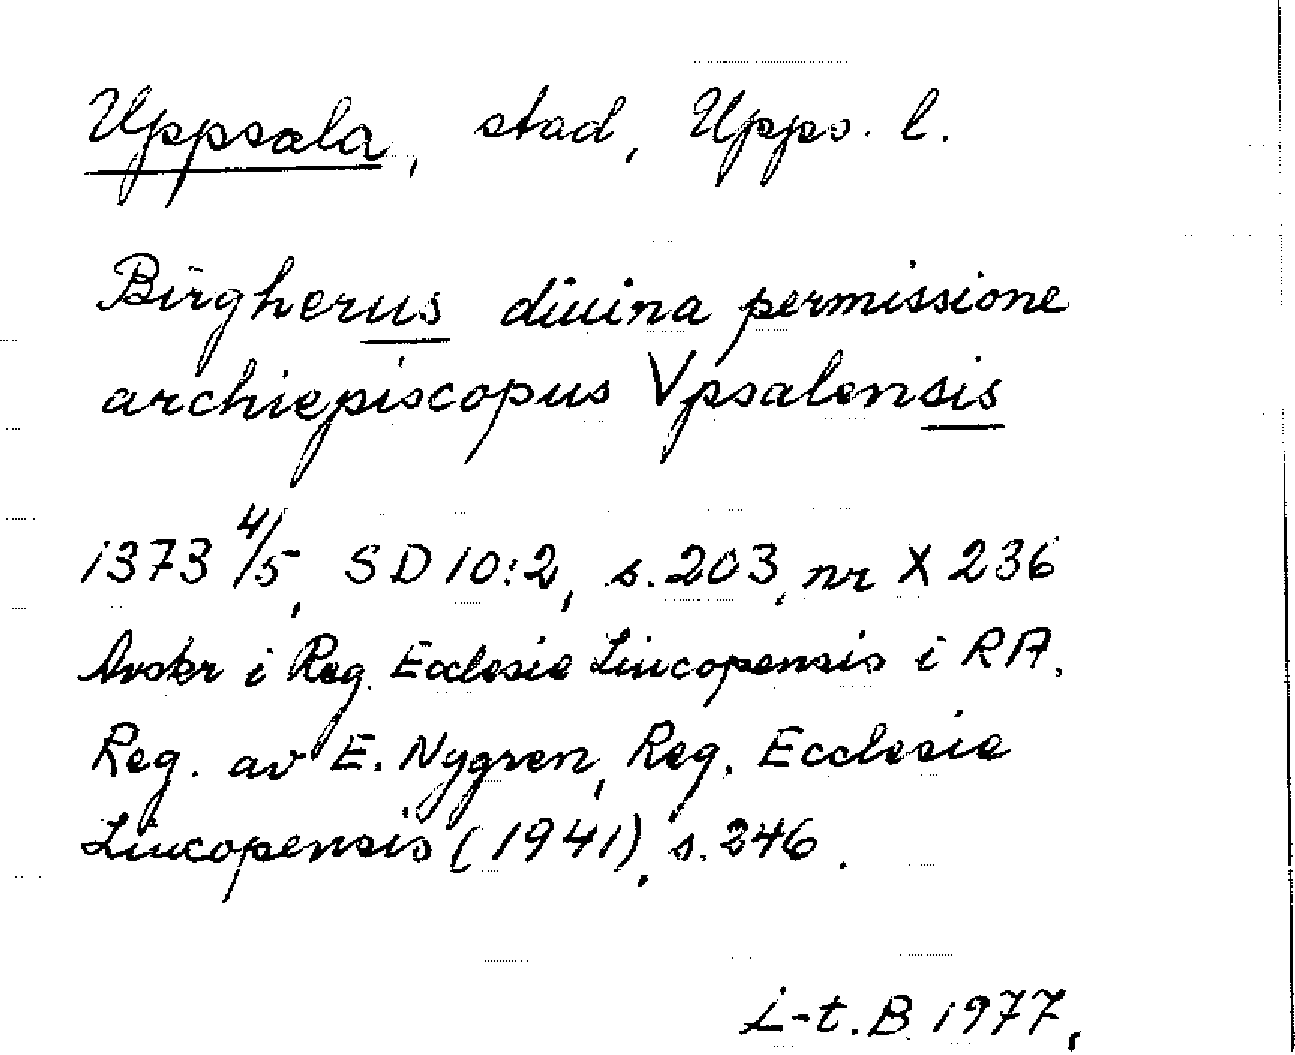 Uppsala, stad, Upps. l.
Birgherus diuina permissione
archiepiscopus Vpsalensis
1373 4/5, SD 10:2, s. 203, nr X 236
Avskr i Reg. Ecclesie Lincopensis i RA.
Reg. av E. Nygren, Reg. Ecclesie
Lincopensis (1941), s. 246.
L-t. B 1977.